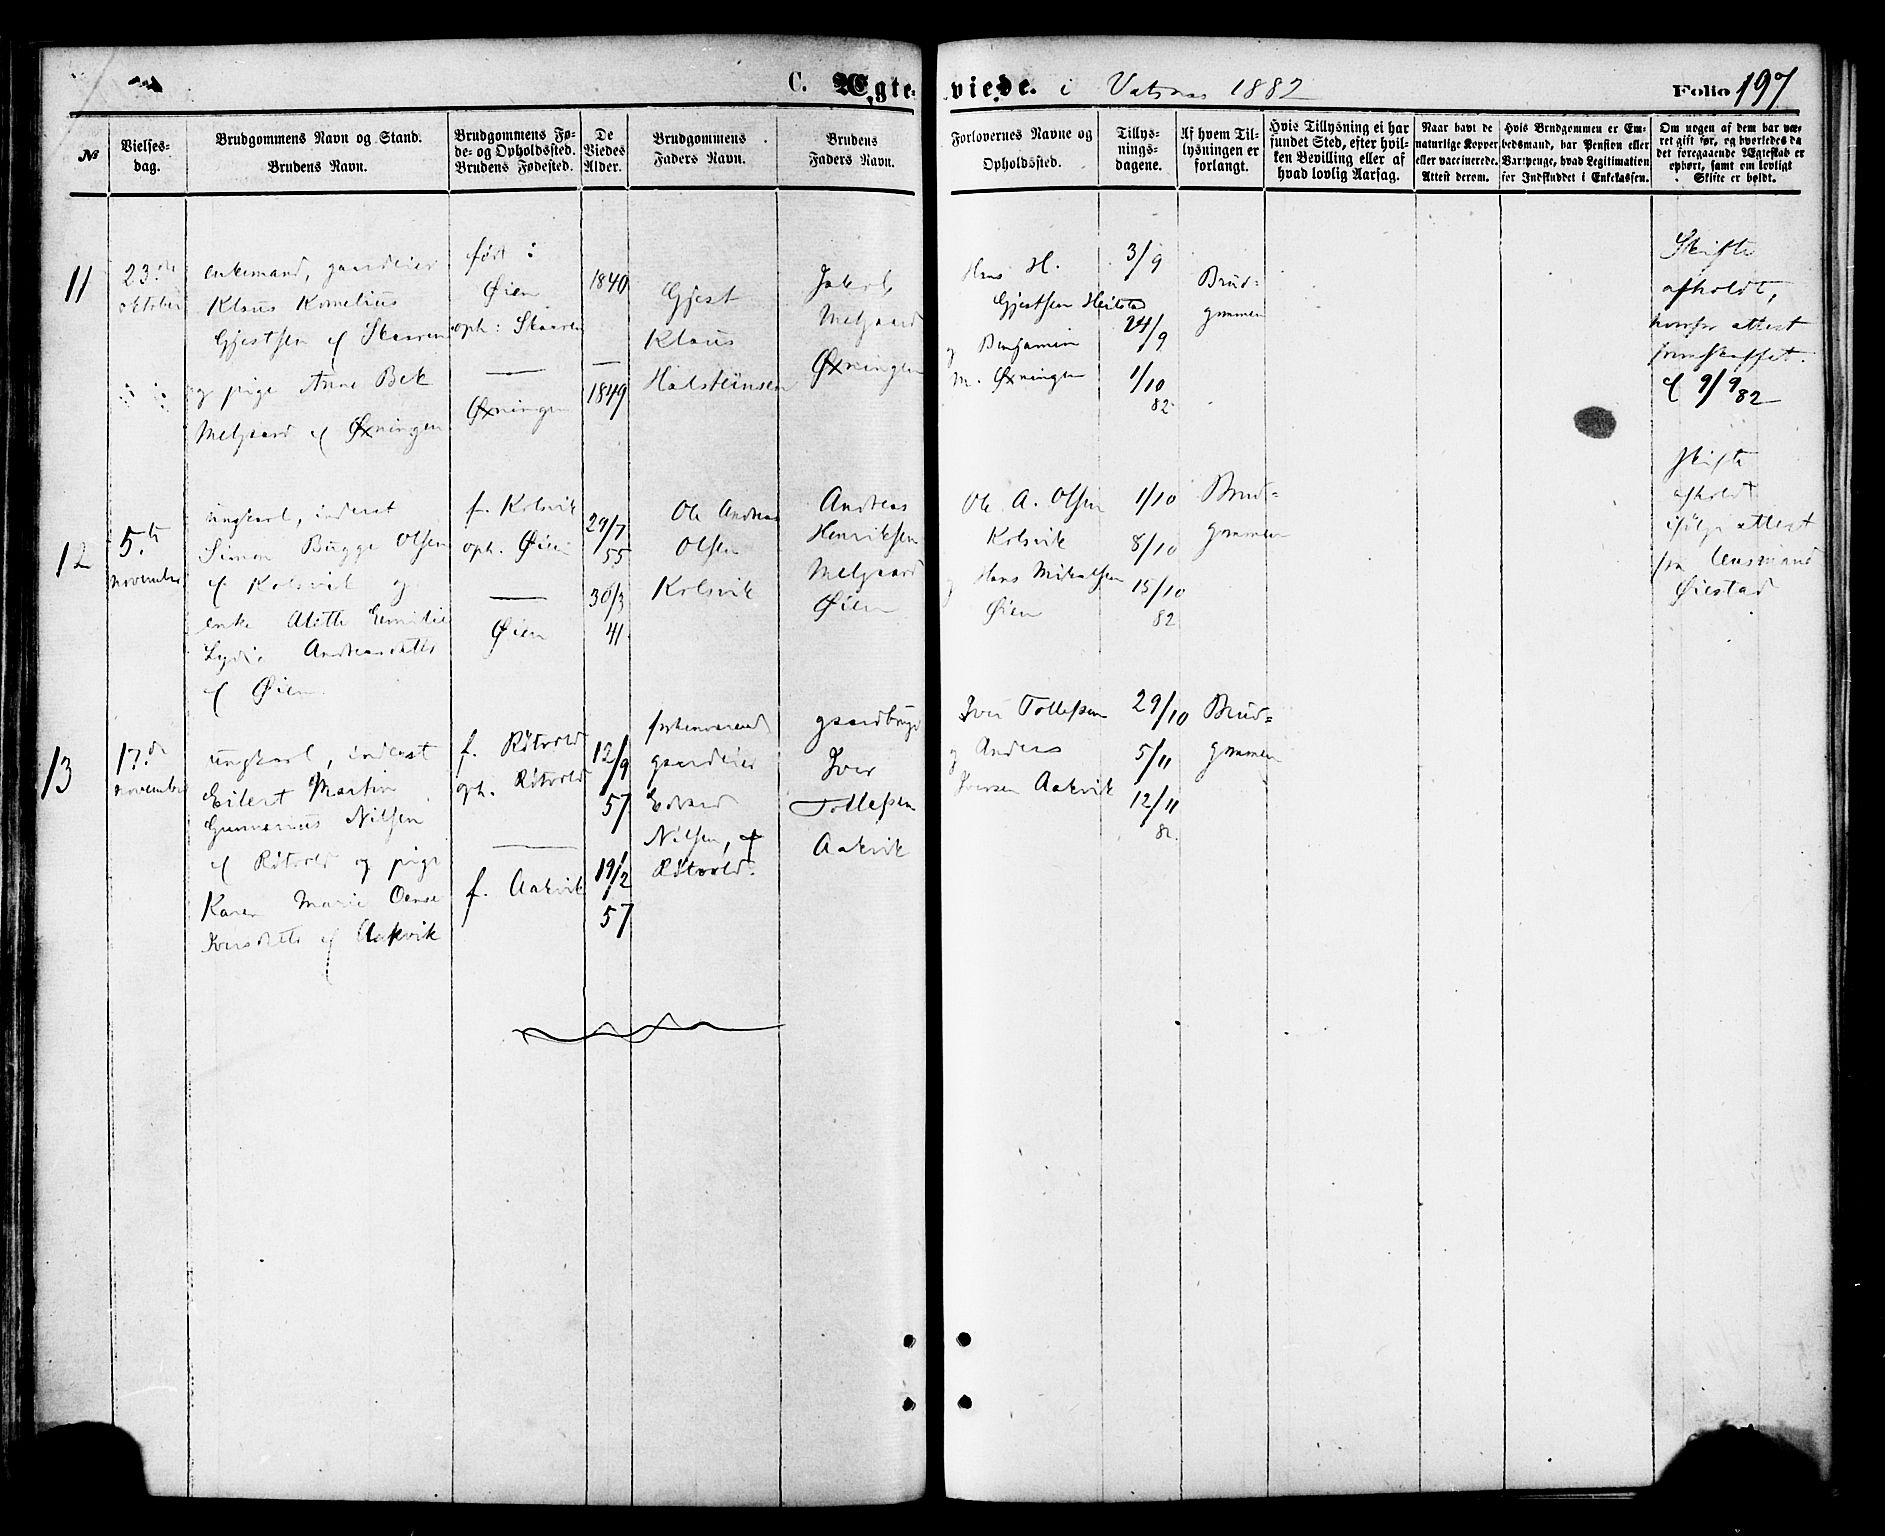 C. Ægte- viede. i Vatnes 1882 Folio 197
№
Vielses-
dag.
Brudgommens Navn og Stand.
Brudens Navn.
Brudgommens Fø-
de- og Opholdssted.
Brudens Fødested.
De
Viedes
Alder.
Brudgommens
Faders Navn.
Brudens
Faders Navn.
Forlovernes Navne og
Opholdssted.
Tillys-
nings-
dagene.
Af hvem Til-
lysningen er
forlangt.
Hvis Tillysning ei har
fundet Sted, efter hvil-
ken Bevilling eller af
hvad lovlig Aarsag.
Naar havt de
naturlige Kopper
eller vaccinerede.
Attest derom.
Hvis Brudgommen er Em-
bedsmand, har Pension eller
Vartpenge, hvad Legitimation
for Indskuddet i Enkekassen.
Om nogen af dem har væ-
ret gift før, og hvorledes da
det foregaaende Ægteskab er
ophørt, samt om lovligt
Skifte er holdt.
11
23.de
oktober
enkemand, gaardeier
Klaus Kornelius
Gjestsen af Skaaren
og pige Anne Bek
Melgaard af Øxningen
født :
Øien
oph: Skaaren
Øxningen
1840
1849
Gjest
Klaus
Halsteinsen
Jakob
Melgaard
Øxningen
Hans H.
Gjestsen Heilstad
og Benjamin
M. Øxningen
3/9
24/9
1/10
82.
Brud=
gommen
Skifte
afholdt,
hvorfor attest
fremskaffet.
af 9/9 82
12
5.te
november
ungkarl, inderst
Simon Bugge Olsen
af Kolsvik og
enke Alette Emilie
Lydi. Andreasdatter
af Øien.
f. Kolsvik
oph. Øien
Øien
29/7
55
30/3
41.
Ole Andreas
Olsen
Kolsvik
Andreas
Henriksen
Melgaard
Øien
Ole A. Olsen
Kolsvik
og Hans Mikalsen
Øien
1/10
8/10
15/10
82
Brud=
gommen
Skifte
afholdt
ifølge attest
fra lensmand
Øiestad
13
17.de
november
ungkarl, inderst
Eilert Martin
Gunnerius Nilsen
af Råtvold og pige
Karen Marie
Iversdatter af Aakvik
f. Råtvold
oph. Råtvold
f. Aakvik
12/9
57
19/2
57
forhenværend
gaardeier
Edvard
Nilsen, af
Råtvold.
gaardbruger
Iver
Tollefsen
Aakvik
Iver Tollefsen
og Anders
Iversen Aakvik
29/10
5/11
12/11
82.
Brud=
gommen